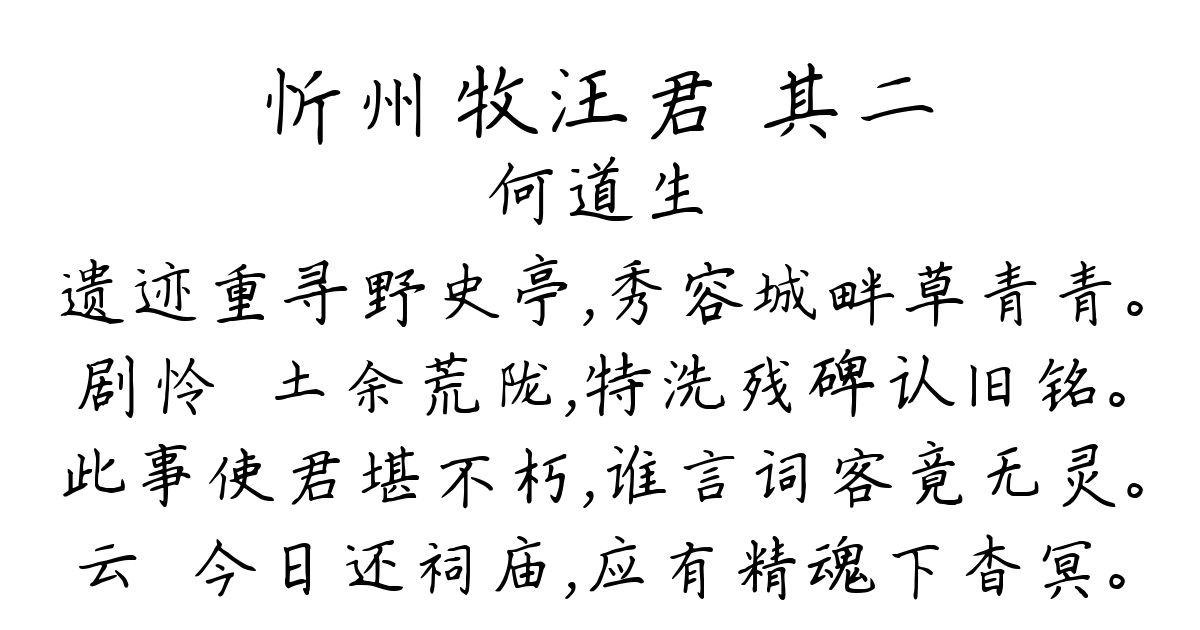 忻州牧汪君 其二
何道生
遗迹重寻野史亭,秀容城畔草青青。
剧怜 土余荒陇,特洗残碑认旧铭。
此事使君堪不朽,谁言词客竟无灵。
云 今日还祠庙,应有精魂下杳冥。